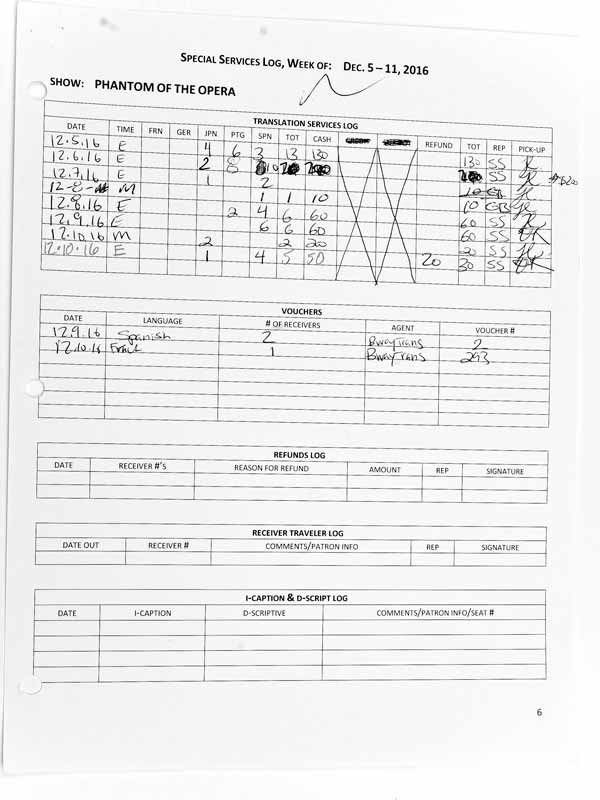 SPECIAL SERVICES LOG, WEEK OF: DEC. 5 – 11, 2016
SHOW: PHANTOM OF THE OPERA
TRANSLATION SERVICES LOG
DATE TIME FRN GER JPN PTG SPN TOT CASH REFUND TOT REP PICK-UP
12.5.16 E 4 6 3 13 130 130 SS
12.6.16 E 2 8 10 SS
12.7.16 E 1 2
12-8- M 1 1 10 10
12.8.16 E 2 4 6 60 60 SS
12.9.16 E 6 6 60 60 SS
12.10.16 M 2 2 20 20 SS
12.10.16 E 1 4 5 50 20 30 SS
VOUCHERS
DATE LANGUAGE # OF RECEIVERS AGENT VOUCHER #
12.9.16 Spanish 2 BwayTrans 2
12.10.16 1 BwayTrans 293
REFUNDS LOG
DATE RECEIVER #'S REASON FOR REFUND AMOUNT REP SIGNATURE
RECEIVER TRAVELER LOG
DATE OUT RECEIVER # COMMENTS/PATRON INFO REP SIGNATURE
I-CAPTION & D-SCRIPT LOG
DATE I-CAPTION D-SCRIPTIVE COMMENTS/PATRON INFO/SEAT #
6